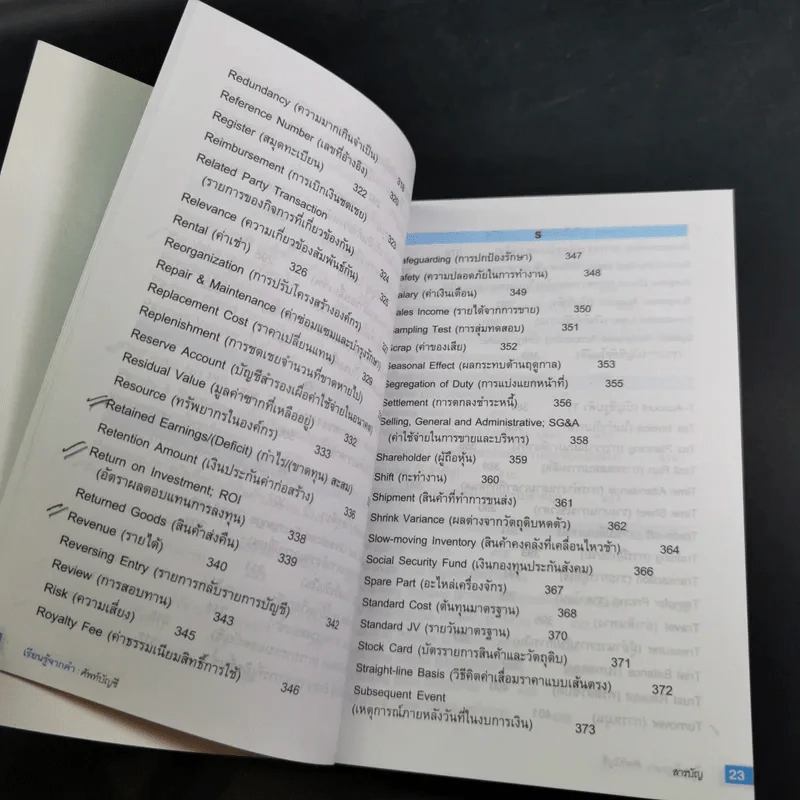 Redundancy (ความมากเกินจำเป็น) 318
Reference Number (เลขที่อ้างอิง) 320
Register (สมุดทะเบียน) 322
Reimbursement (การเบิกเงินชดเชย) 323
Related Party Transaction
(รายการของกิจการที่เกี่ยวข้องกัน) 324
Relevance (ความเกี่ยวข้องสัมพันธ์กัน) 325
Rental (ค่าเช่า) 326
Reorganization (การปรับโครงสร้างองค์กร)
Repair & Maintenance (ค่าซ่อมแซมและบำรุงรักษา)
Replacement Cost (ราคาเปลี่ยนแทน) 329
Replenishment (การชดเชยจำนวนที่ขาดหายไป)
Reserve Account (บัญชีสำรองเผื่อค่าใช้จ่ายในอนาคต)
Residual Value (มูลค่าซากที่เหลืออยู่) 332
Resource (ทรัพยากรในองค์กร) 333
Retained Earnings/(Deficit) (กำไร/(ขาดทุน) สะสม)
Retention Amount (เงินประกันค่าก่อสร้าง) 336
Return on Investment; ROI
(อัตราผลตอบแทนการลงทุน) 338
Returned Goods (สินค้าส่งคืน) 339
Revenue (รายได้) 340
Reversing Entry (รายการกลับรายการบัญชี) 342
Review (การสอบทาน) 343
Risk (ความเสี่ยง) 345
Royalty Fee (ค่าธรรมเนียมสิทธิ์การใช้) 346
เรียนรู้จากคำ : ศัพท์บัญชี
S
afeguarding (การปกป้องรักษา) 347
afety (ความปลอดภัยในการทำงาน) 348
alary (ค่าเงินเดือน) 349
ales Income (รายได้จากการขาย) 350
ampling Test (การสุ่มทดสอบ) 351
crap (ค่าของเสีย) 352
Seasonal Effect (ผลกระทบด้านฤดูกาล) 353
Segregation of Duty (การแบ่งแยกหน้าที่) 355
Settlement (การตกลงชำระหนี้) 356
Selling, General and Administrative; SG&A
(ค่าใช้จ่ายในการขายและบริหาร) 358
Shareholder (ผู้ถือหุ้น) 359
Shift (กะทำงาน) 360
Shipment (สินค้าที่ทำการขนส่ง) 361
Shrink Variance (ผลต่างจากวัตถุดิบหดตัว) 362
Slow-moving Inventory (สินค้าคงคลังที่เคลื่อนไหวช้า) 364
Social Security Fund (เงินกองทุนประกันสังคม) 366
Spare Part (อะไหล่เครื่องจักร) 367
Standard Cost (ต้นทุนมาตรฐาน) 368
Standard JV (รายวันมาตรฐาน) 370
Stock Card (บัตรรายการสินค้าและวัตถุดิบ) 371
Straight-line Basis (วิธีคิดค่าเสื่อมราคาแบบเส้นตรง) 372
Subsequent Event
(เหตุการณ์ภายหลังวันที่ในงบการเงิน) 373
สารบัญ 23